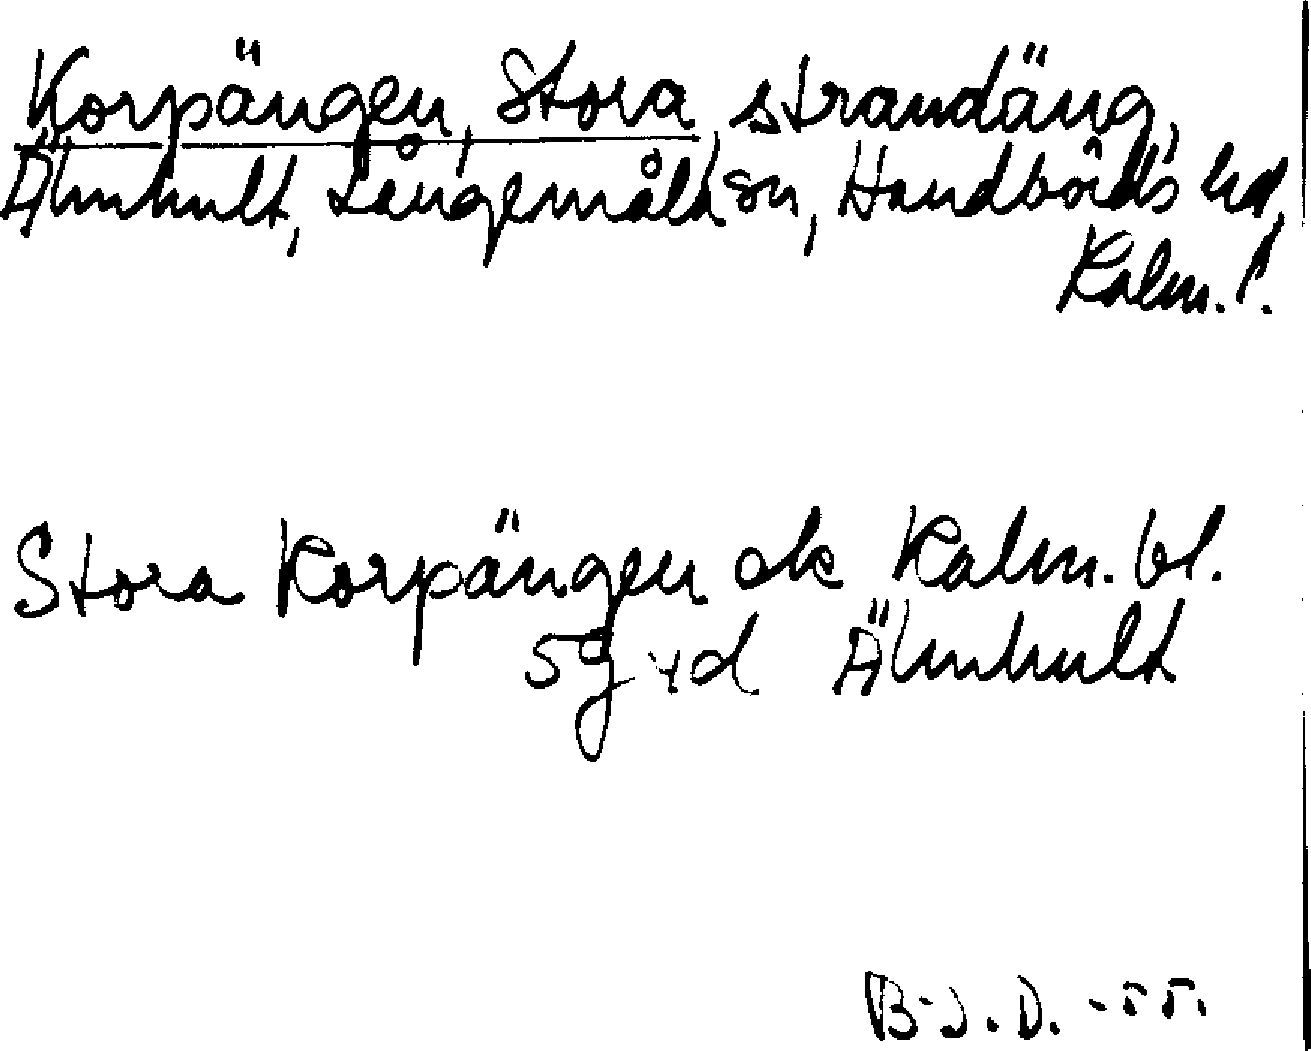 Korpängen, Stora, strandäng,
Älmhult, Långemåla sn, Handbörds hd,
Kalm. l.
Stora Korpängen ek Kalm. bl.
5g Älmhult
B-J. D. -55.